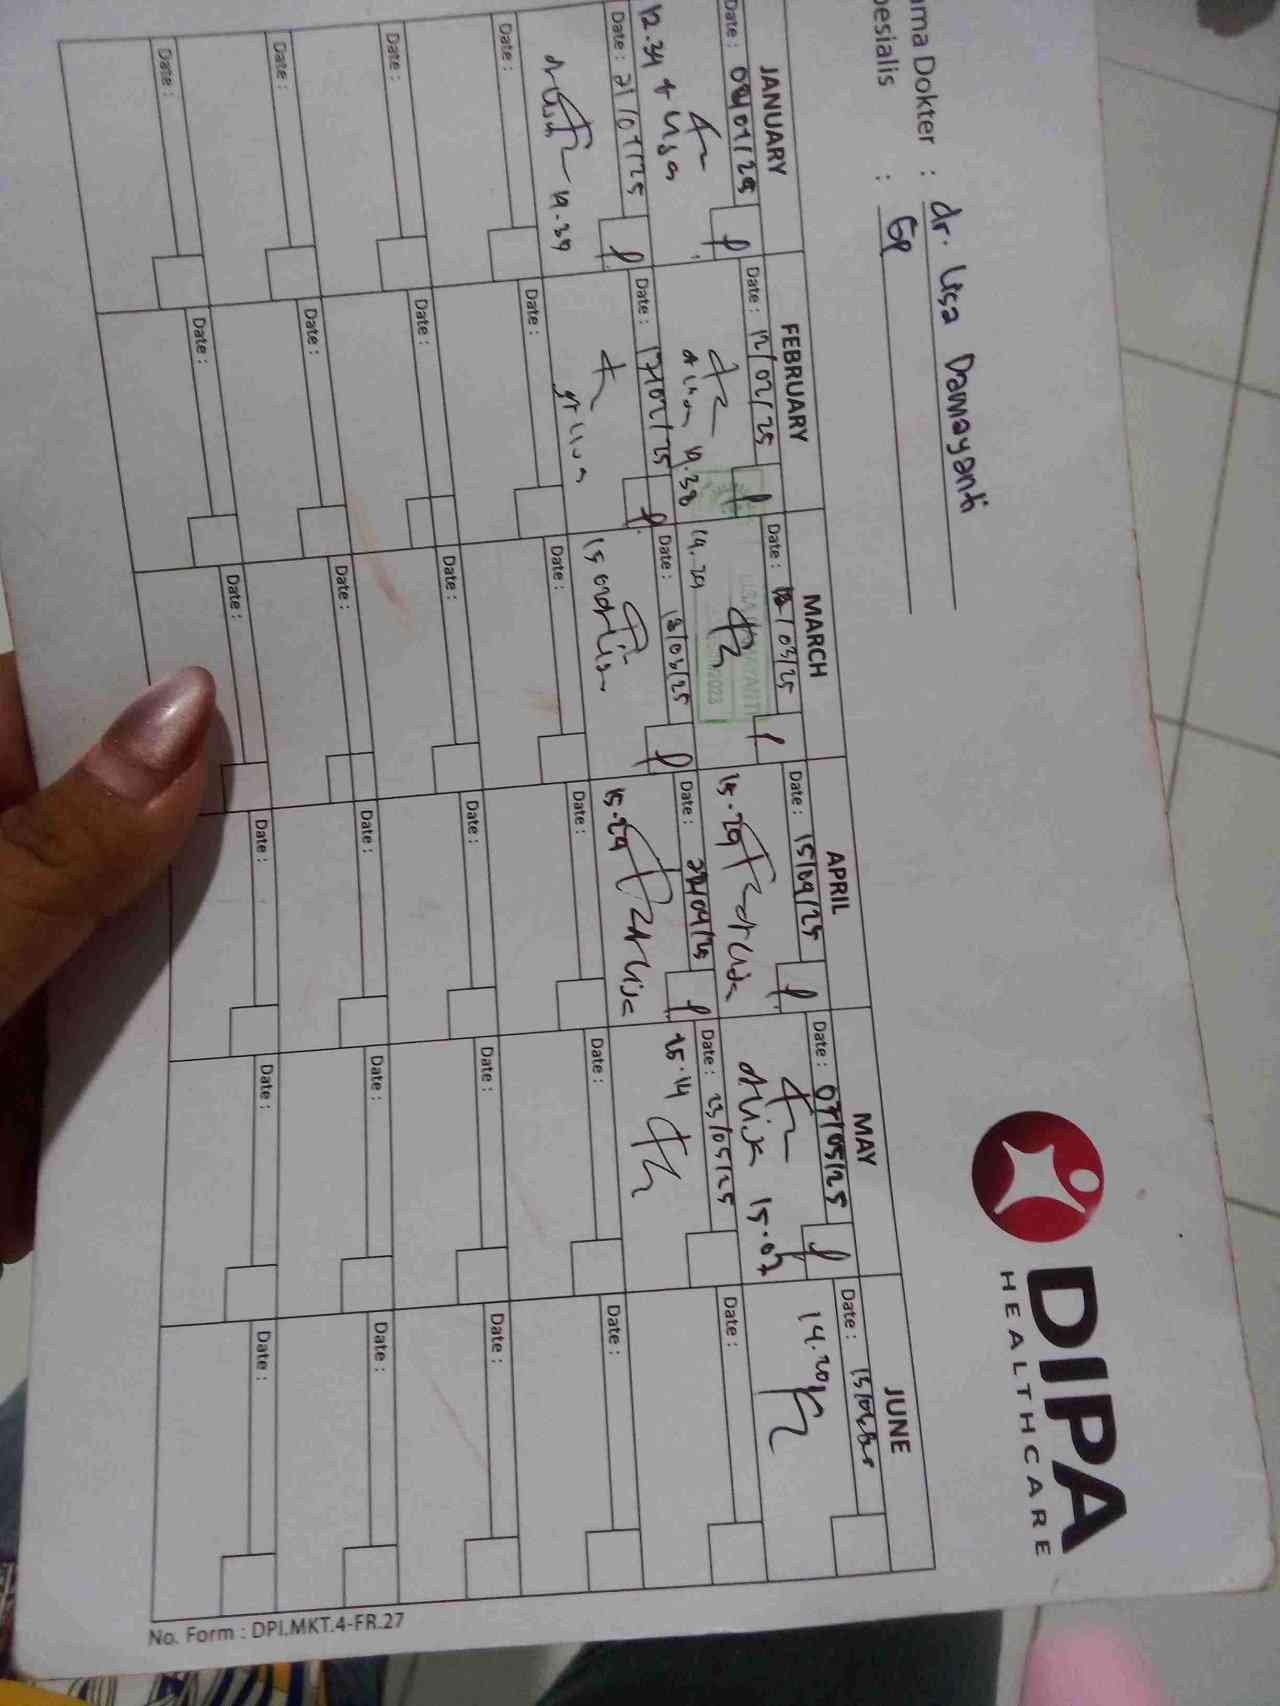 DIPA
HEALTHCARE
ama Dokter : dr. Lisa Damayanti
pesialis : GP
JANUARY FEBRUARY MARCH APRIL MAY JUNE
Date : /01/25 Date : 12/02/25 Date : /03/25 Date : 15/04/25 Date : 07/05/25 Date :
12.34 dr Lisa
dr Lisa 14.38
14.29
15.29 dr Lisa
dr Lisa 15.07
14.20
Date : 21/01/25 Date : 17/02/25 Date : 18/03/25 Date : /04/25 Date : 23/05/25 Date :
dr Lisa 14.39
dr Lisa
15 dr Lisa
15.29 dr Lisa
15.14
Date : Date : Date : Date : Date : Date :
Date : Date : Date : Date : Date : Date :
Date : Date : Date : Date : Date : Date :
Date : Date : Date : Date : Date : Date :
No. Form : DPI.MKT.4-FR.27